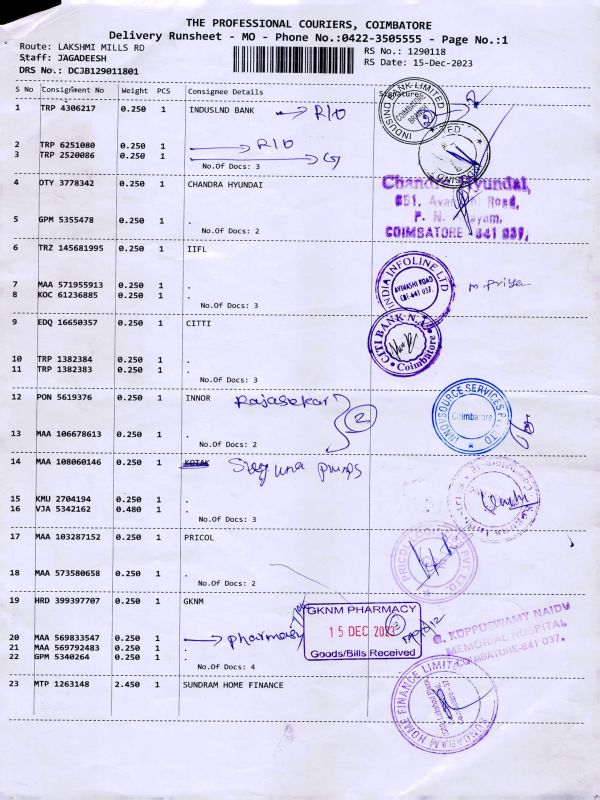 THE PROFESSIONAL COURIERS, COIMBATORE
Delivery Runsheet - MO - Phone No.:0422-3505555 - Page No.:1
Route: LAKSHMI MILLS RD
RS No.: 1290118
Staff: JAGADEESH
RS Date: 15-Dec-2023
DRS No.: DCJB129011801
S No Consignment No Weight PCS Consignee Details Signature
1 TRP 4306217 0.250 1 INDUSLND BANK
2 TRP 6251080 0.250 1
3 TRP 2520086 0.250 1 .
No.Of Docs: 3
4 DTY 3778342 0.250 1 CHANDRA HYUNDAI
5 GPM 5355478 0.250 1 .
No.Of Docs: 2
COIMBATORE - 641 037.
6 TRZ 145681995 0.250 1 IIFL
INDIA INFOLINE LTD
AVINASHI ROAD
CBE-641 037.
M. Priya
7 MAA 571955913 0.250 1 .
8 KOC 61236885 0.250 1 .
No.Of Docs: 3
9 EDQ 16650357 0.250 1 CITTI
CITI BANK N.A.
Coimbatore
10 TRP 1382384 0.250 1 .
11 TRP 1382383 0.250 1 .
No.Of Docs: 3
12 PON 5619376 0.250 1 INNOR Rajasekar
2
INNOVSOURCE SERVICES PVT LTD
Coimbatore
13 MAA 106678613 0.250 1 .
No.Of Docs: 2
14 MAA 108060146 0.250 1 KOTAK Suguna pumps
15 KMU 2704194 0.250 1 .
16 VJA 5342162 0.480 1 .
No.Of Docs: 3
17 MAA 103287152 0.250 1 PRICOL
18 MAA 573580658 0.250 1 .
No.Of Docs: 2
19 HRD 399397707 0.250 1 GKNM
GKNM PHARMACY
15 DEC 2023
Goods/Bills Received
G. KUPPUSWAMY NAIDU
MEMORIAL HOSPITAL
COIMBATORE-641 037.
20 MAA 569833547 0.250 1 pharmacy
21 MAA 569792483 0.250 1 .
22 GPM 5340264 0.250 1 .
No.Of Docs: 4
23 MTP 1263148 2.450 1 SUNDRAM HOME FINANCE
SUNDARAM HOME FINANCE LIMITED